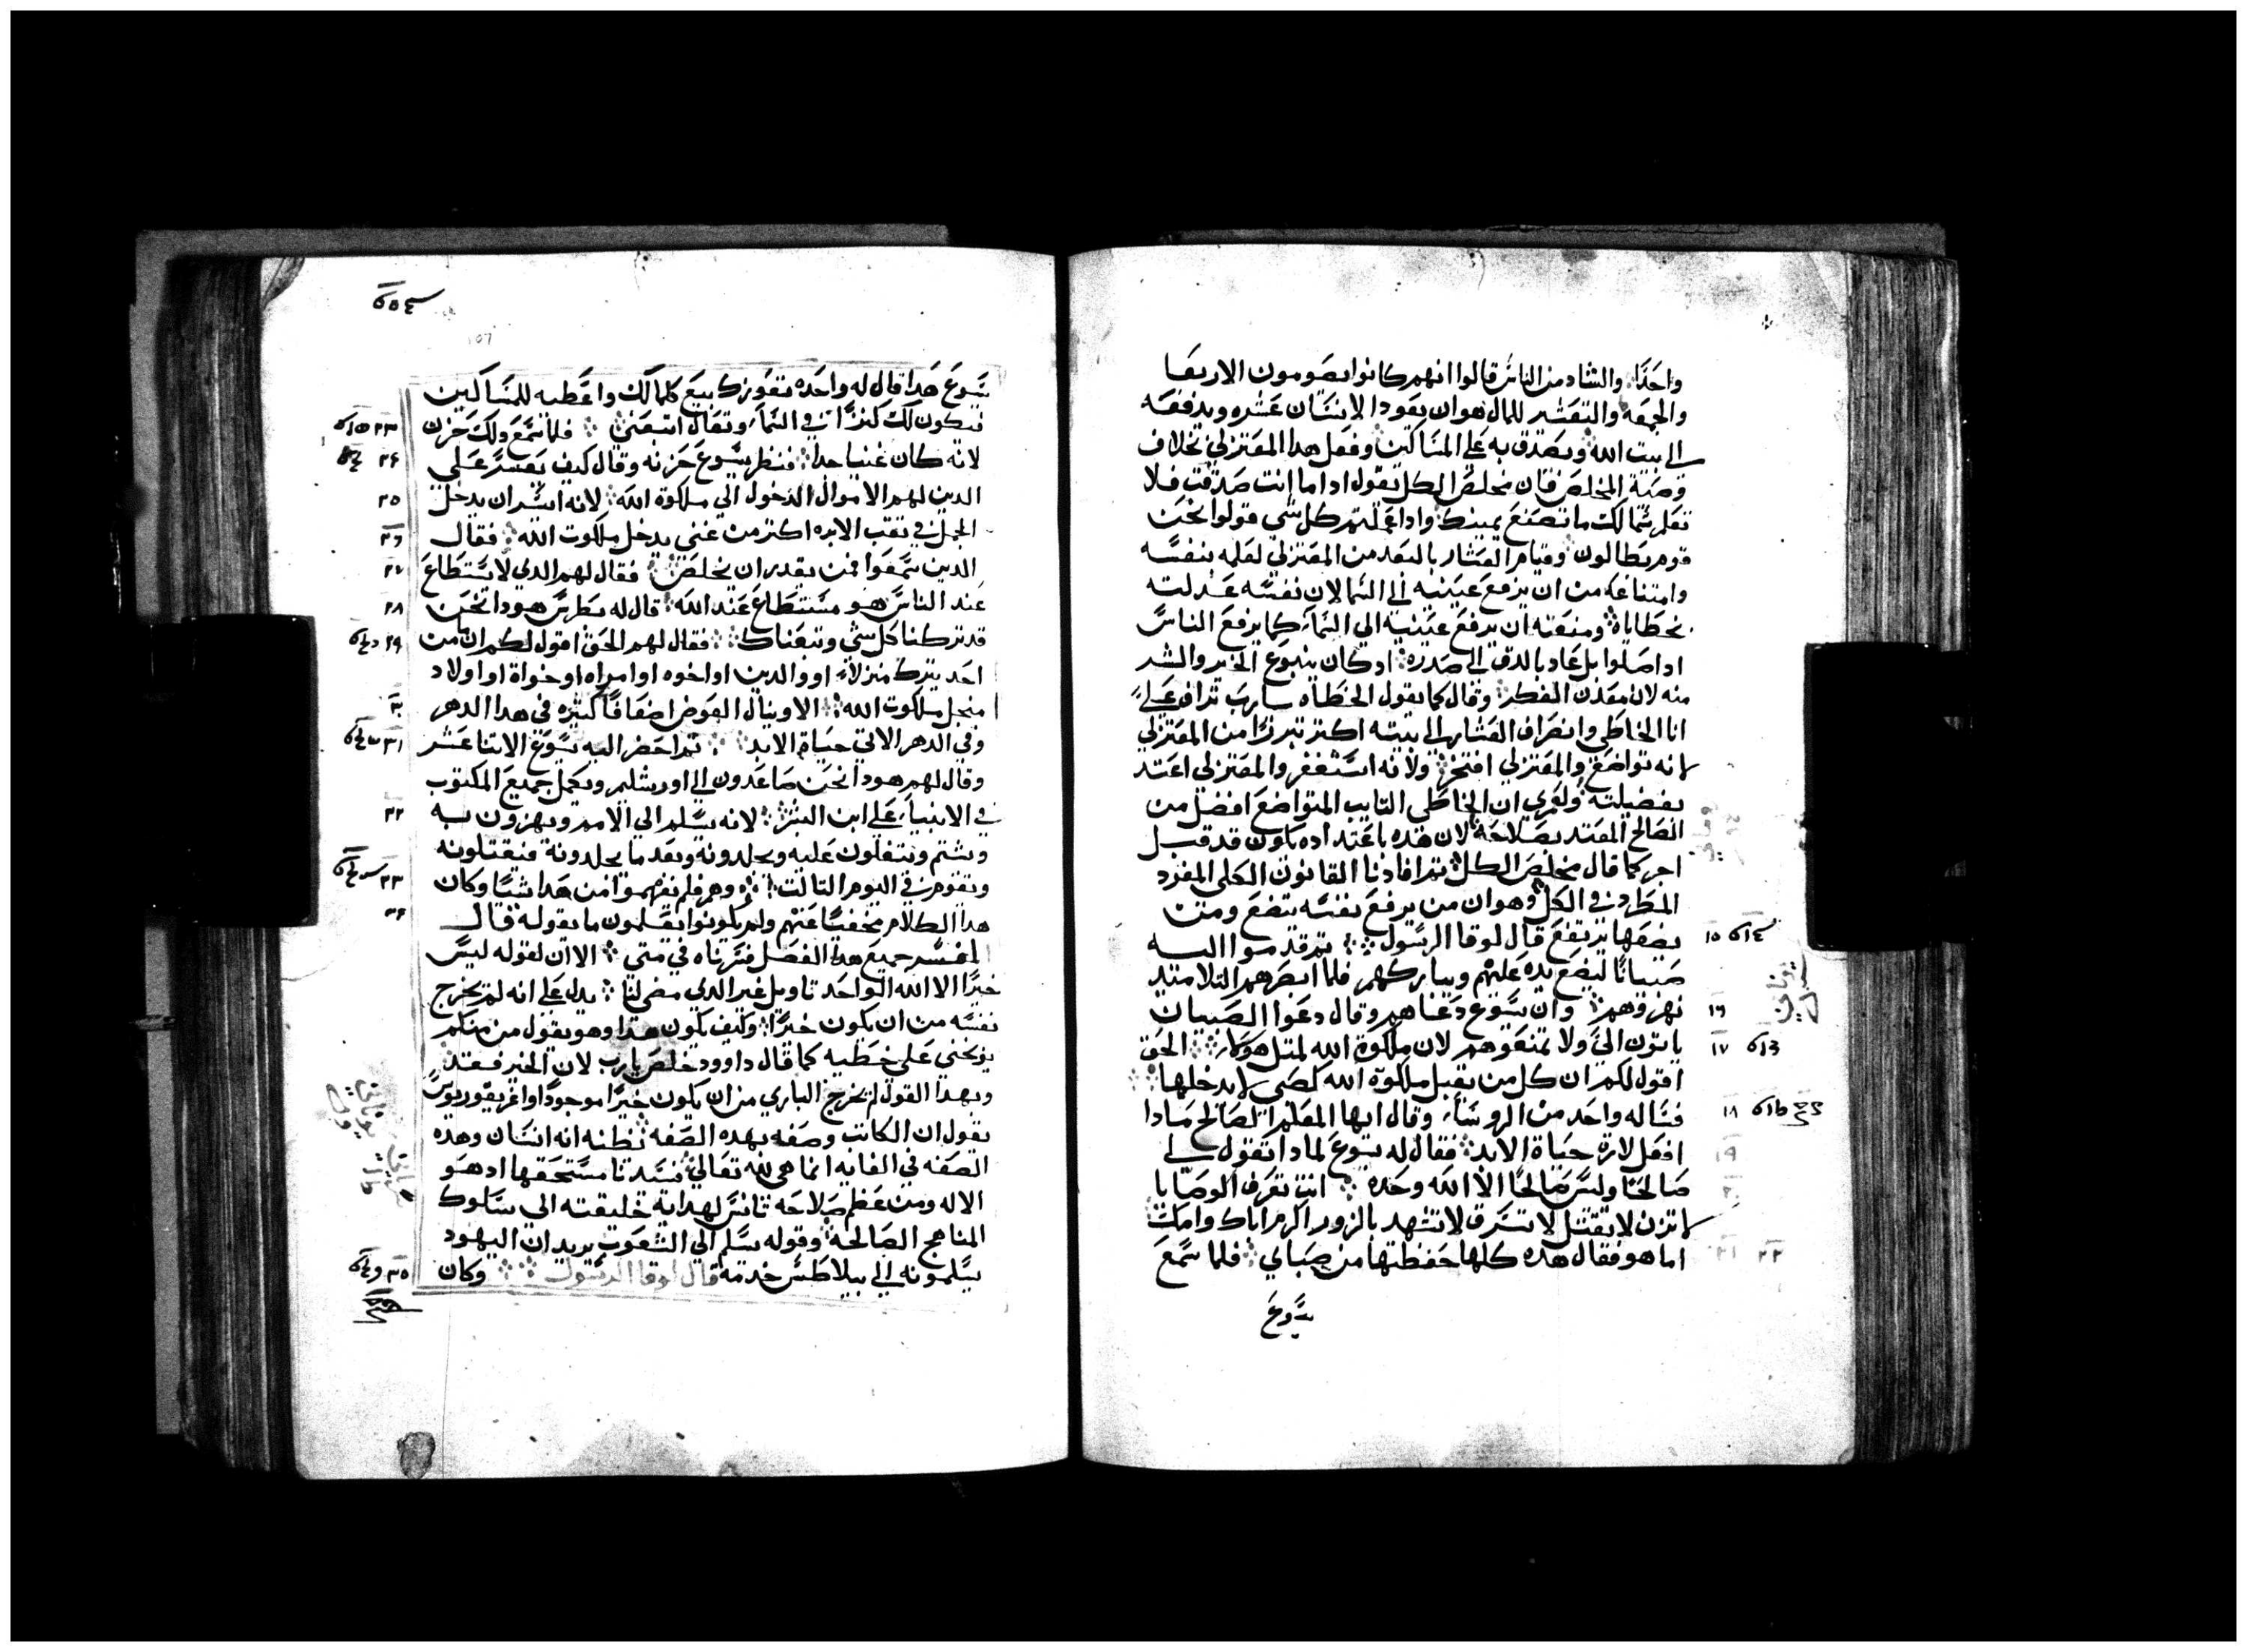 واحدا والشاد من الناس قالوا انهم كانوا يصومون الاربعا
والجمعه والتعشير للمال هو ان يعود الانسان عشره ويدفعه
الى بيت الله ويصدق به على المساكين وفعل هدا المعتزلي بخلاف
وصية المخلص فان مخلص الكل يقول ادا ما انت صدقت فلا
تعلم شمالك ما تصنع يمينك وادا عملتم كل شي قولوا نحن
قوم بطالون وقيام العشار بالبعد من المعتزلي لعلمه بنفسه
وامتناعه من ان يرفع عينيه الى السما لان نفسه عدلته
بخطاياه ومنعته ان يرفع عينيه الي السما كما يرفع الناس
ادا صلوا بل عاد بالدق الى صدره اد كان ينبوع الخير والشر
منه لانه معدن الفكر وقال كما يقول الخطاه يا رب تراف علي
انا الخاطي وانصراف العشار الى بيته اكتر تبررا من المعتزلي
لانه تواضع والمعتزلي افتخر ولانه استغفر والمعتزلي اعتد
بفضيلته ولعمري ان الخاطي التايب المتواضع افضل من
الصالح المعتد بصلاحه لان هده باعتداده يكون قد قبل
اجره كما قال مخلص الكل تم افادنا القانون الكلي المفرد
المطرد في الكل وهو ان من يرفع نفسه يتضع ومن
يضعها يرتفع قال لوقا الرسول تم قدموا اليه
صبيانا ليضع يده عليهم ويباركهم فلما ابصرهم التلاميد
نهروهم وان يسوع دعاهم وقال دعوا الصبيان
ياتون الي ولا تمنعوهم لان ملكوة الله لمتل هوكاء الحق
اقول لكم ان كل من يقبل ملكوة الله كصبي لا يدخلها
فساله واحد من الروسا وقال ايها المعلم الصالح مادا
افعل لارة حياة الابد فقال له يسوع لمادا تقول لي
صالحا وليس صالحا الا الله وحده انت تعرف الوصايا
لا تزن لا تقتل لا تسرق لا تشهد بالزور اكرم اباك وامك
اما هو فقال هده كلها حفظتها من صباي فلما سمع
يسوع
١٥
١٦
١٧
١٨
٢٢
يسوع هدا قال له واحده تعوزك بيع كلما لك واعطيه للمساكين
فيكون لك كنزا في السما وتعال اتبعني فلما سمع دلك حزن
لانه كان غنيا جدا فنظر يسوع حزنه وقال كيف يعسر على
الدين لهم الاموال الدخول الي ملكوة الله لانه ايسر ان يدخل
الجمل في تقب الابره اكتر من غني يدخل ملكوت الله فقال
الدين سمعوا فمن يقدر ان يخلص فقال لهم الدي لا يستطاع
عند الناس هو مستطاع عند الله قال له بطرس هودا نحن
قد تركنا كل شي وتبعناك فقال لهم الحق اقول لكم ان ما من
احد يترك منزلا او والدين او اخوه او امراه او اخواة او اولاد
من اجل ملكوت الله الا وينال العوض اضعافا كتيره في هدا الدهر
وفي الدهر الاتي حياة الابد تم احضر اليه يسوع الاتنا عشر
وقال لهم هودا نحن صاعدون الي اورشليم ويكمل جميع المكتوب
في الانبيا على ابن البشر لانه يسلم الي الامم ويهزون به
ويشتم ويتفلون عليه ويجلدونه وبعد ما يجلدونه فيقتلونه
ويقوم في اليوم التالت وهم فلم يفهموا من هدا شيا وكان
هدا الكلام مخفيا عنهم ولم يكونوا يعلمون ما يقوله قال
المفسر جميع هدا الفصل فسرناه في متي الا ان لقوله ليس
خيرا الا الله الواحد تاويل غير الدي مضي لنا يدل على انه لم يخرج
نفسه من ان يكون خيرا وكيف يكون هدا وهو يقول من منكم
يوبخني على خطيه كما قال داوود خلص يا رب لان الخير فقد
وبهدا القول لم يخرج الباري من ان يكون خيرا موجودا واغريغوريوس
يقول ان الكاتب وصفه بهده الصفه بظنه انه انسان وهده
الصفه في الغايه انما هي لله تعالي فسيدنا مستحقها اد هو
الاله ومن عظم صلاحه تانس لهداية خليقته الى سلوك
المناهج الصالحة وقوله يسلم الي الشعوب يريد ان اليهود
يسلمونه الي بيلاطس خدمة قال لوقا الرسول وكان
٢٣
٢٤
٢٥
٢٦
٢٧
٢٨
٢٩
٣٠
٣١
٣٢
٣٣
٣٤
٣٥